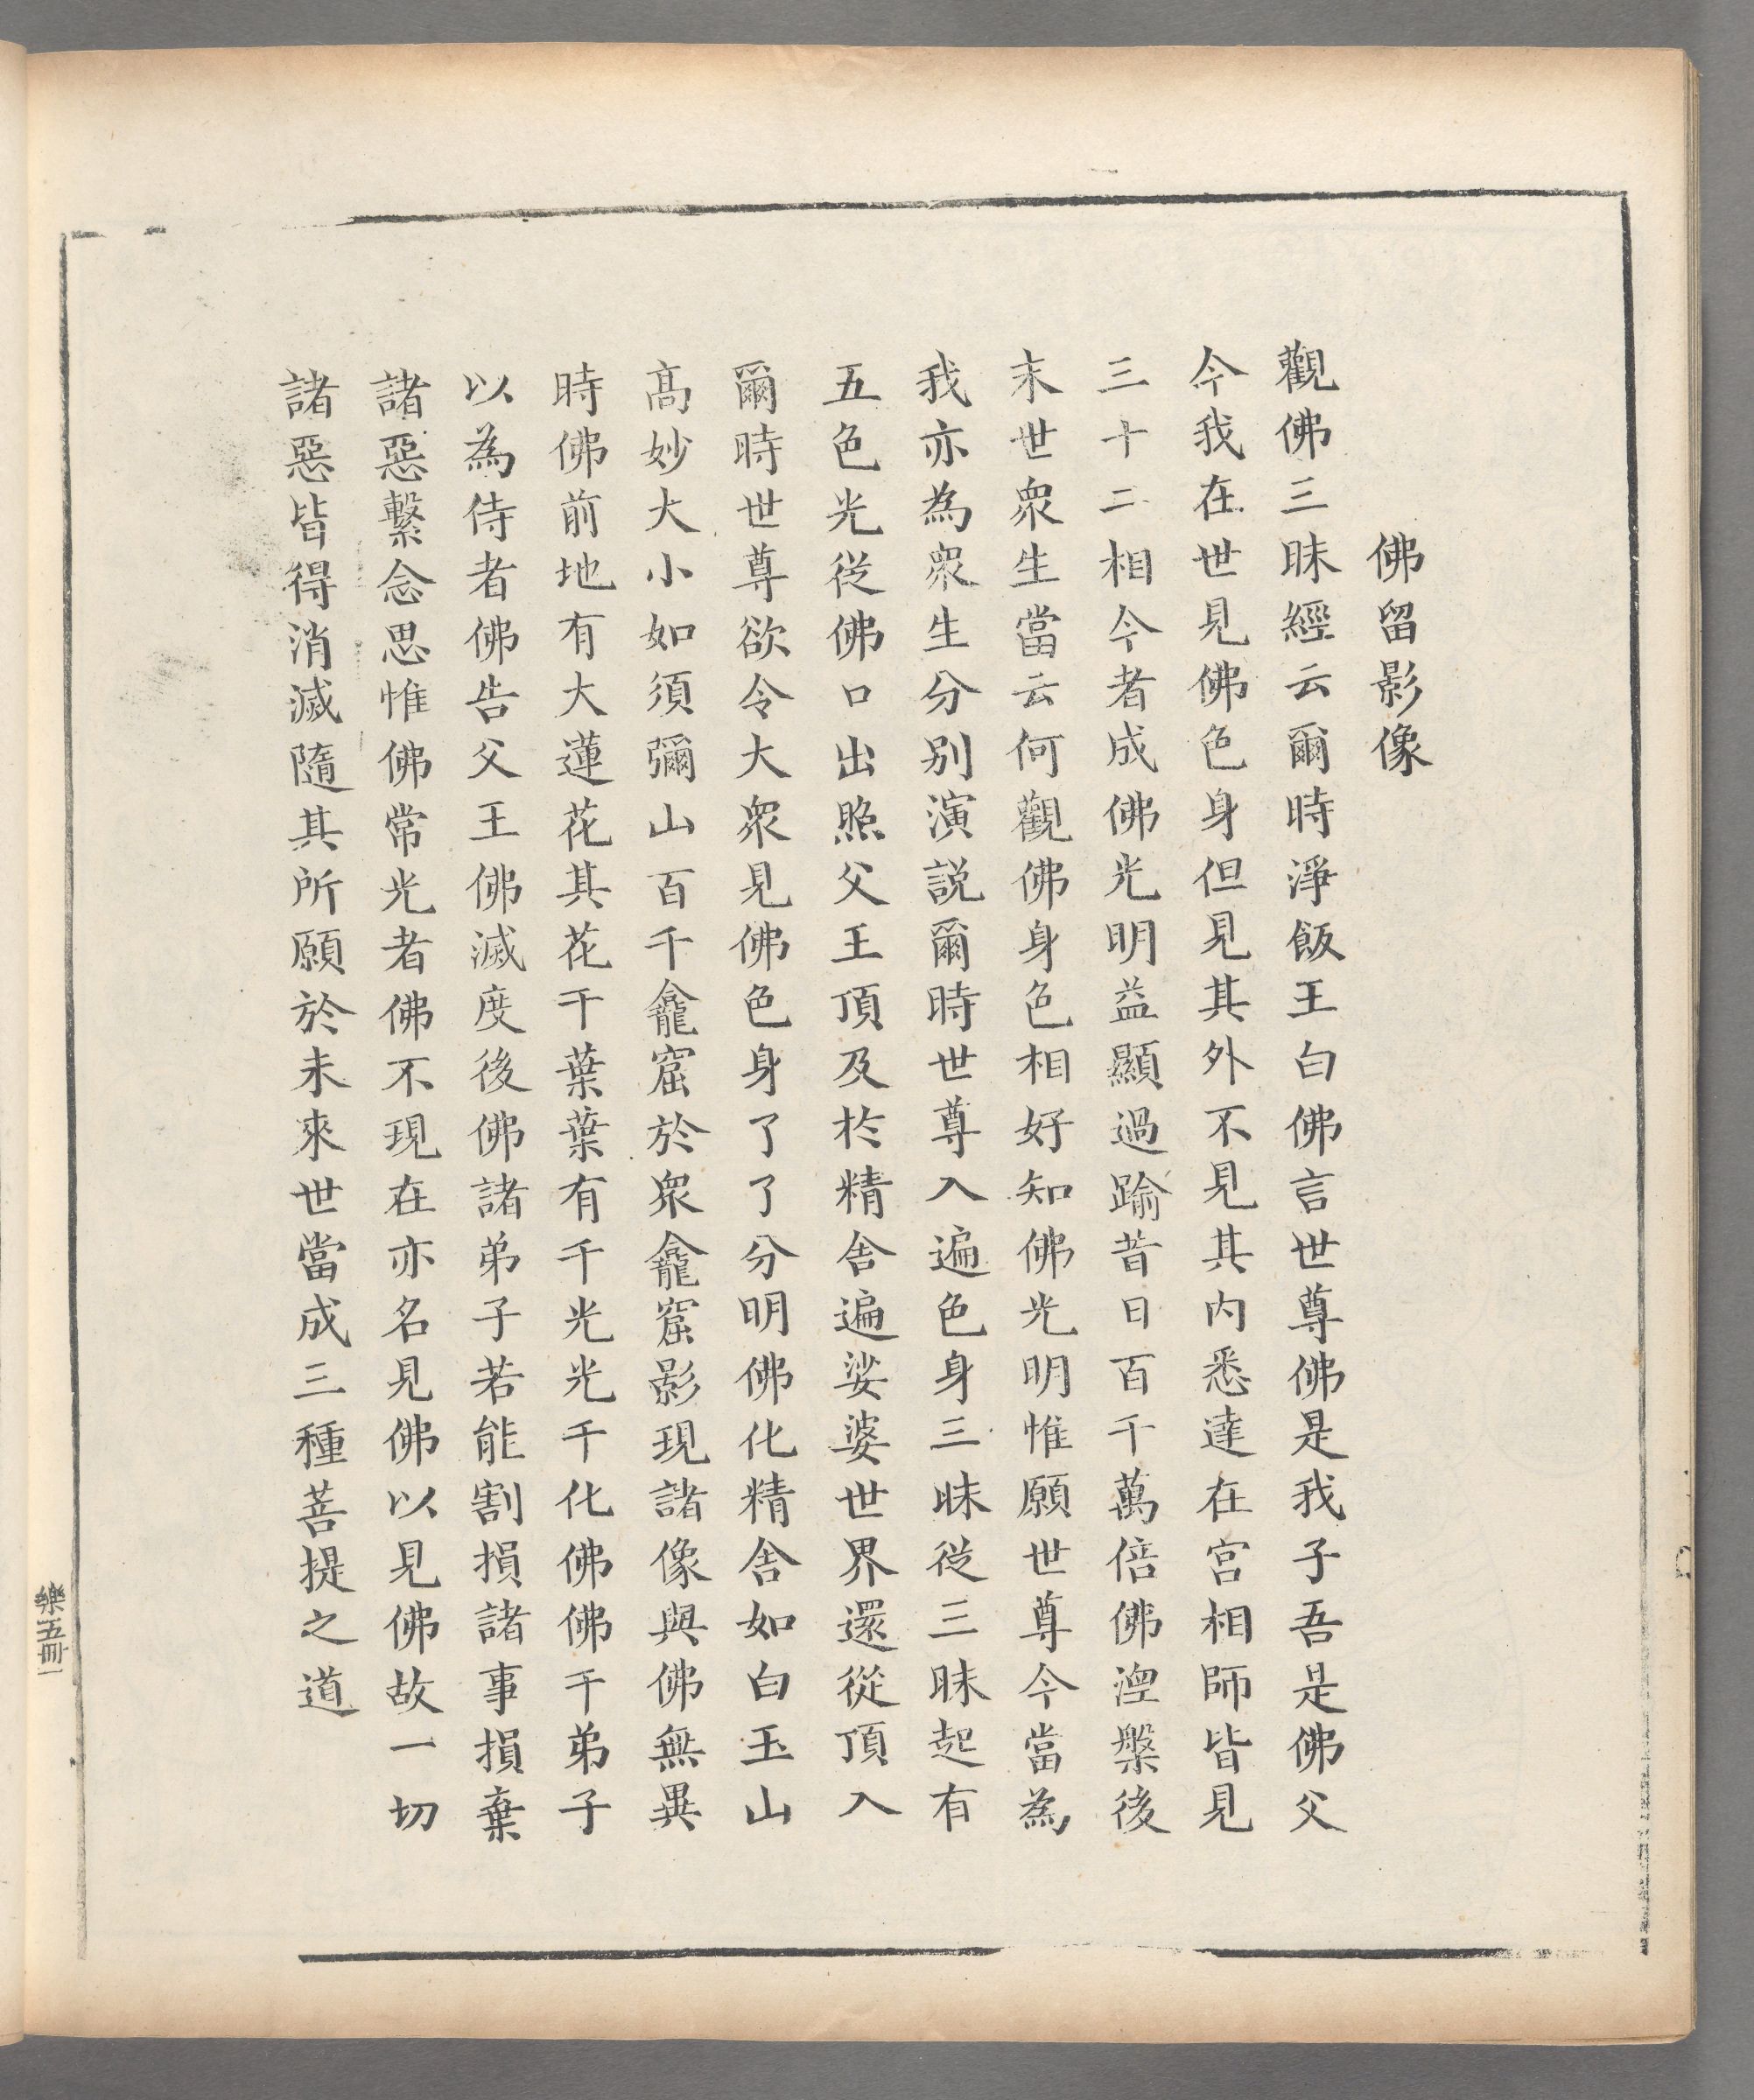 佛留影像
觀佛三昧經云爾時淨飯王白佛言世尊佛是我子吾是佛父
今我在世見佛色身但見其外不見其內悉達在宮相師皆見
三十二相今者成佛光明益顯過踰昔日百千萬倍佛涅槃後
末世衆生當云何觀佛身色相好知佛光明惟願世尊今當為
我亦為衆生分別演説爾時世尊入遍色身三昧從三昧起有
五色光從佛口出照父王頂及於精舍遍娑婆世界還從頂入
爾時世尊欲令大衆見佛色身了了分明佛化精舍如白玉山
高妙大小如須彌山百千龕窟於衆龕窟影現諸像與佛無異
時佛前地有大蓮花其花千葉葉有千光光千化佛佛千弟子
以為侍者佛告父王佛滅度後佛諸弟子若能割損諸事損棄
諸惡繫念思惟佛常光者佛不現在亦名見佛以見佛故一切
諸惡皆得消滅隨其所願於未來世當成三種菩提之道
樂五冊一